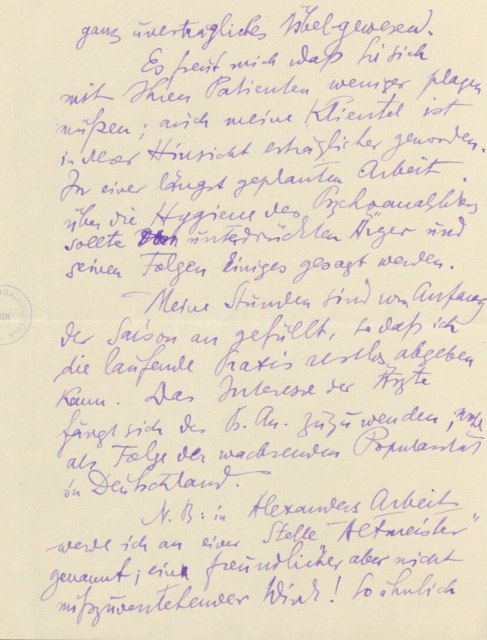 ganz unverträgliches Übel gewesen.
Es freut mich daß Sie sich
mit Ihren Patienten weniger plagen
müßen; auch meine Klientel ist
in der Hinsicht erträglicher geworden.
In einer längst geplanten Arbeit
über die Hygiene des Psychoanalytikers
sollte unterdrückten Ärger und
seinen Folgen Einiges gesagt werden.
Meine Stunden sind von Anfang
der Saison an gefüllt, so daß ich
die laufende Praxis restlos abgeben
kann. Das Interesse der Ärzte
fängt sich der Ps. An. zuzuwenden,
als Folge der wachsenden Popularität
in Deutschland.
N. B: in Alexanders Arbeit
werde ich an einer Stelle "Altmeister"
genannt; ein freundlicher aber nicht
mißzuverstehender Wink! So ähnlich